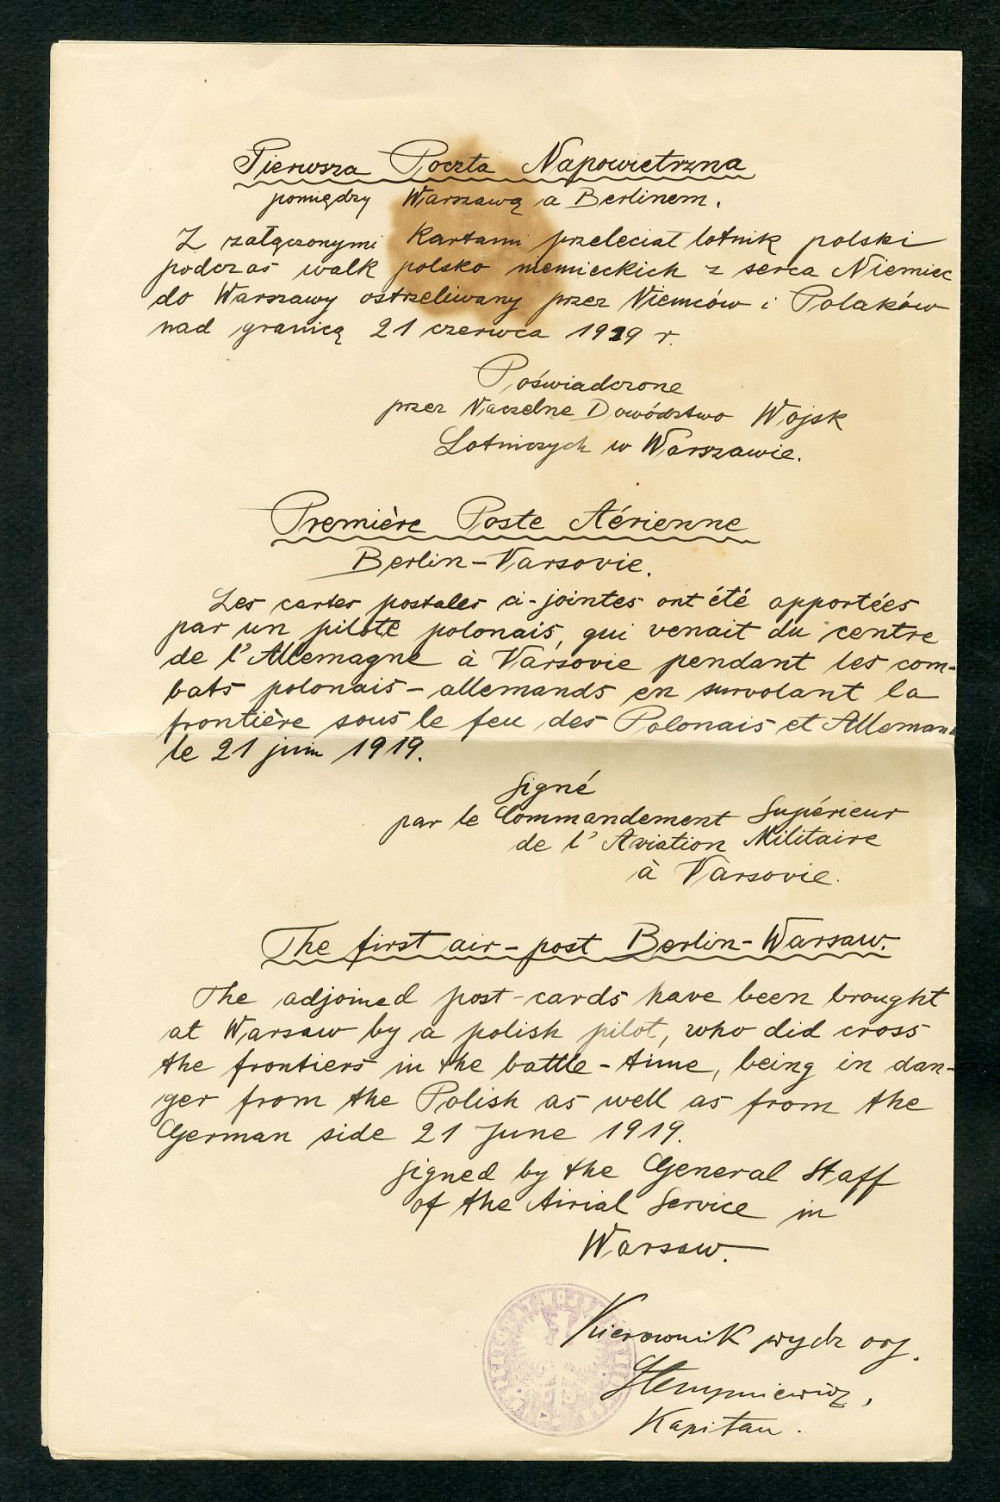 Pierwsza Poczta Napowietrzna
pomiędzy Warszawą a Berlinem.
Z załączonymi Kartami przeleciał lotnik polski
podczas walk polsko niemieckich z serca Niemiec
do Warszawy ostrzeliwany przez Niemców i Polaków
nad granicą 21 czerwca 1919 r.
Poświadczone
przez Naczelne Dowództwo Wojsk
Lotniczych w Warszawie.
Première Poste Aérienne
Berlin-Varsovie.
Les cartes postales ci-jointes ont été apportées
par un pilote polonais, qui venait du centre
de l'Allemagne à Varsovie pendant les com-
bats polonais-allemands en survolant la
frontière sous le feu des Polonais et Alleman
le 21 juin 1919.
Signé
par le Commandement Supérieur
de l'Aviation Militaire
à Varsovie.
The first air-post Berlin-Warsaw.
The adjoined post-cards have been brought
at Warsaw by a polish pilot, who did cross
the frontiers in the battle-time, being in dan-
ger from the Polish as well as from the
German side 21 June 1919.
Signed by the General Staff
of the Airial Service in
Warsaw.
Kierownik wydz org.
Kapitan.